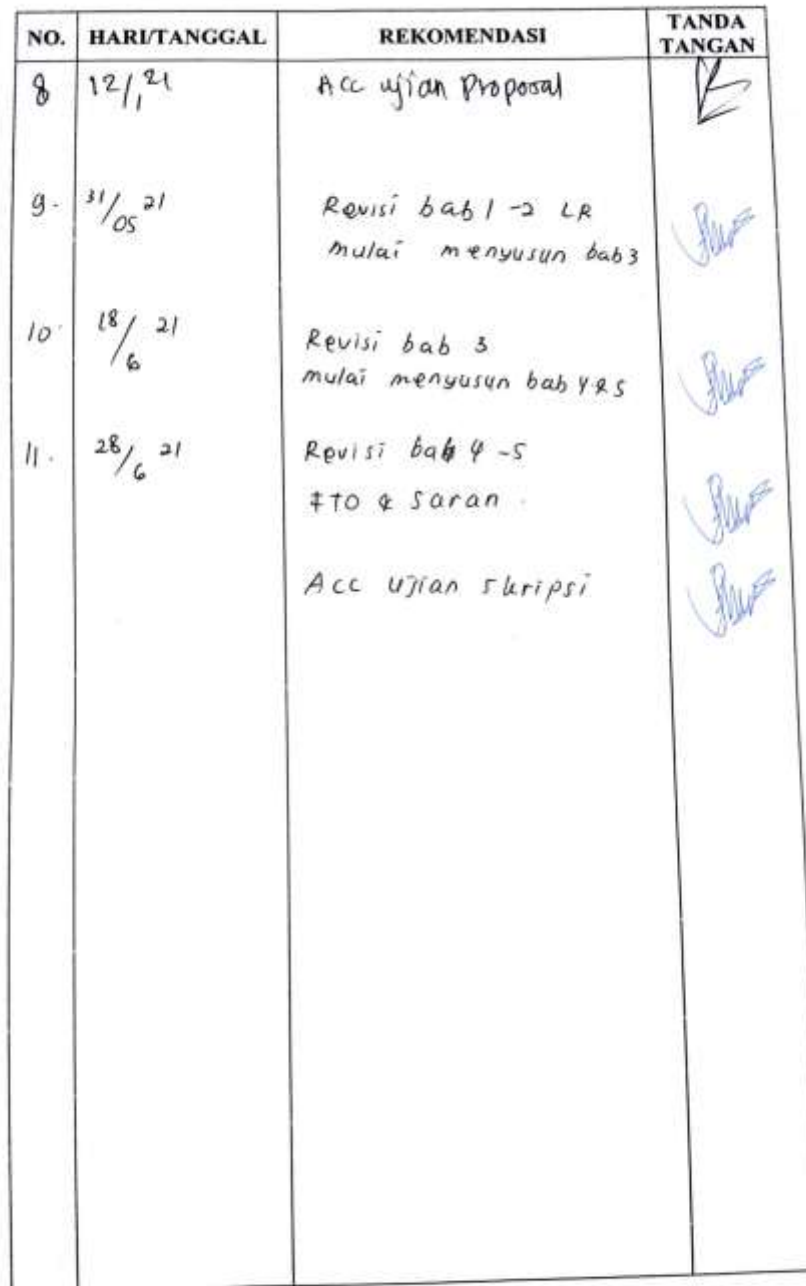 NO. HARI/TANGGAL REKOMENDASI TANDA TANGAN
8 12/1 21 Acc ujian Proposal
9. 31/05 21 Revisi bab 1-2 LR
mulai menyusun bab 3
10. 18/6 21 Revisi bab 3
mulai menyusun bab 4 & 5
11. 28/6 21 Revisi bab 4-5
& Saran
Acc ujian skripsi